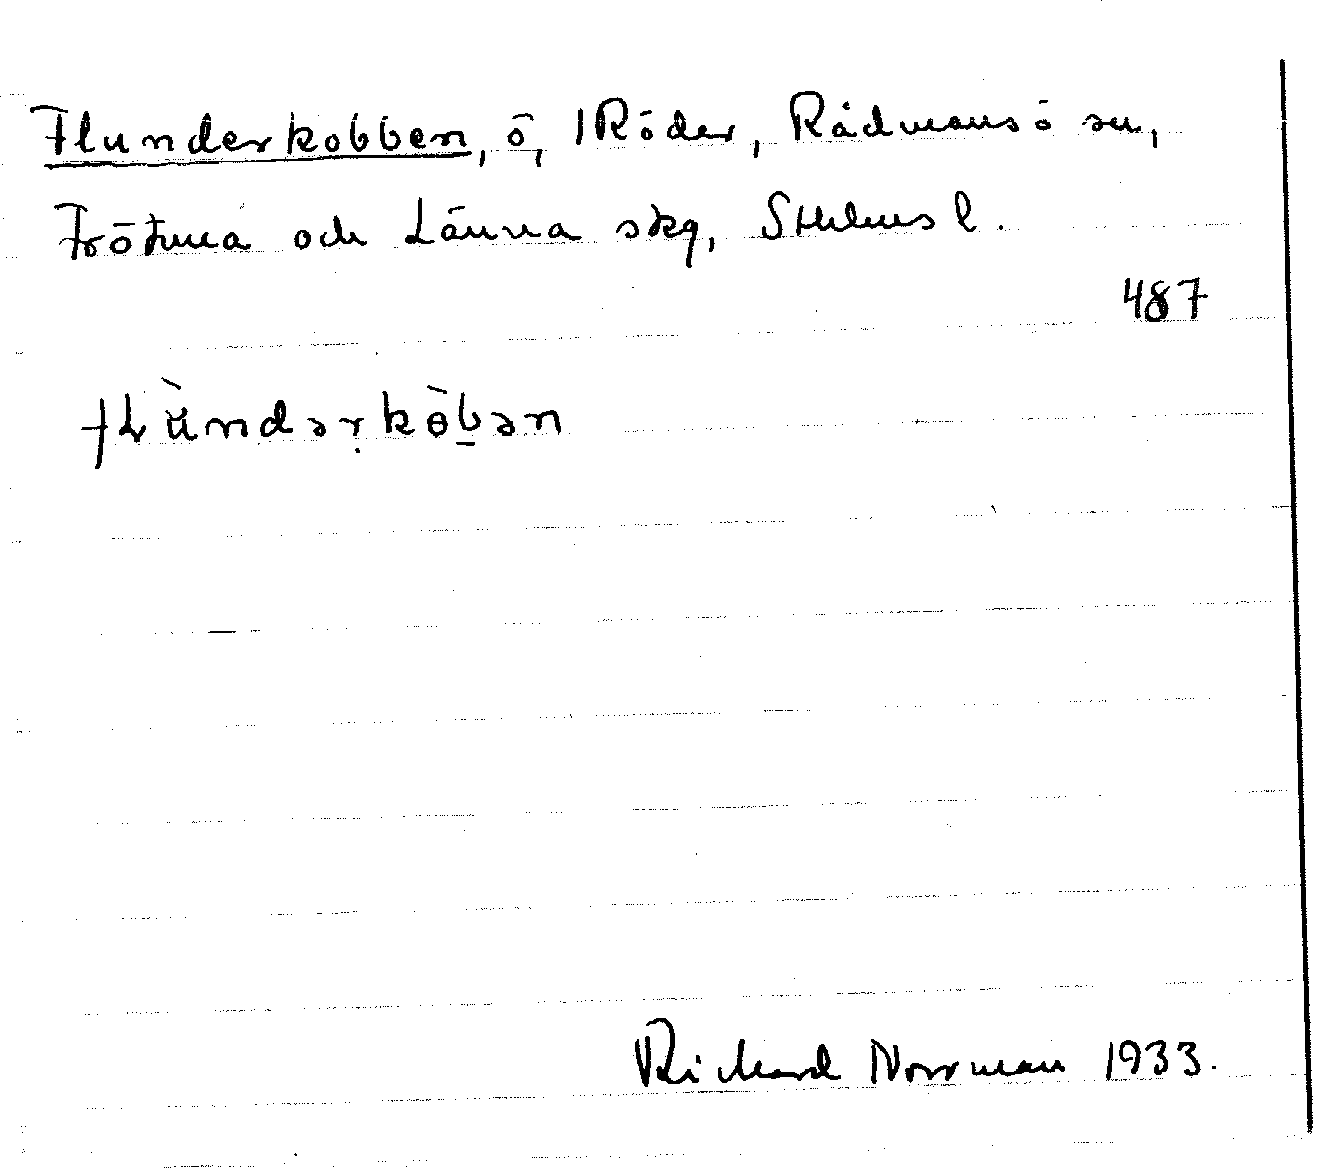 Flunderkobben, ö, i Röder, Rådmansö sn,
Frötuna och Länna skg, Sthlms l.
487
flùndərkòbən
Richard Norrman 1933.